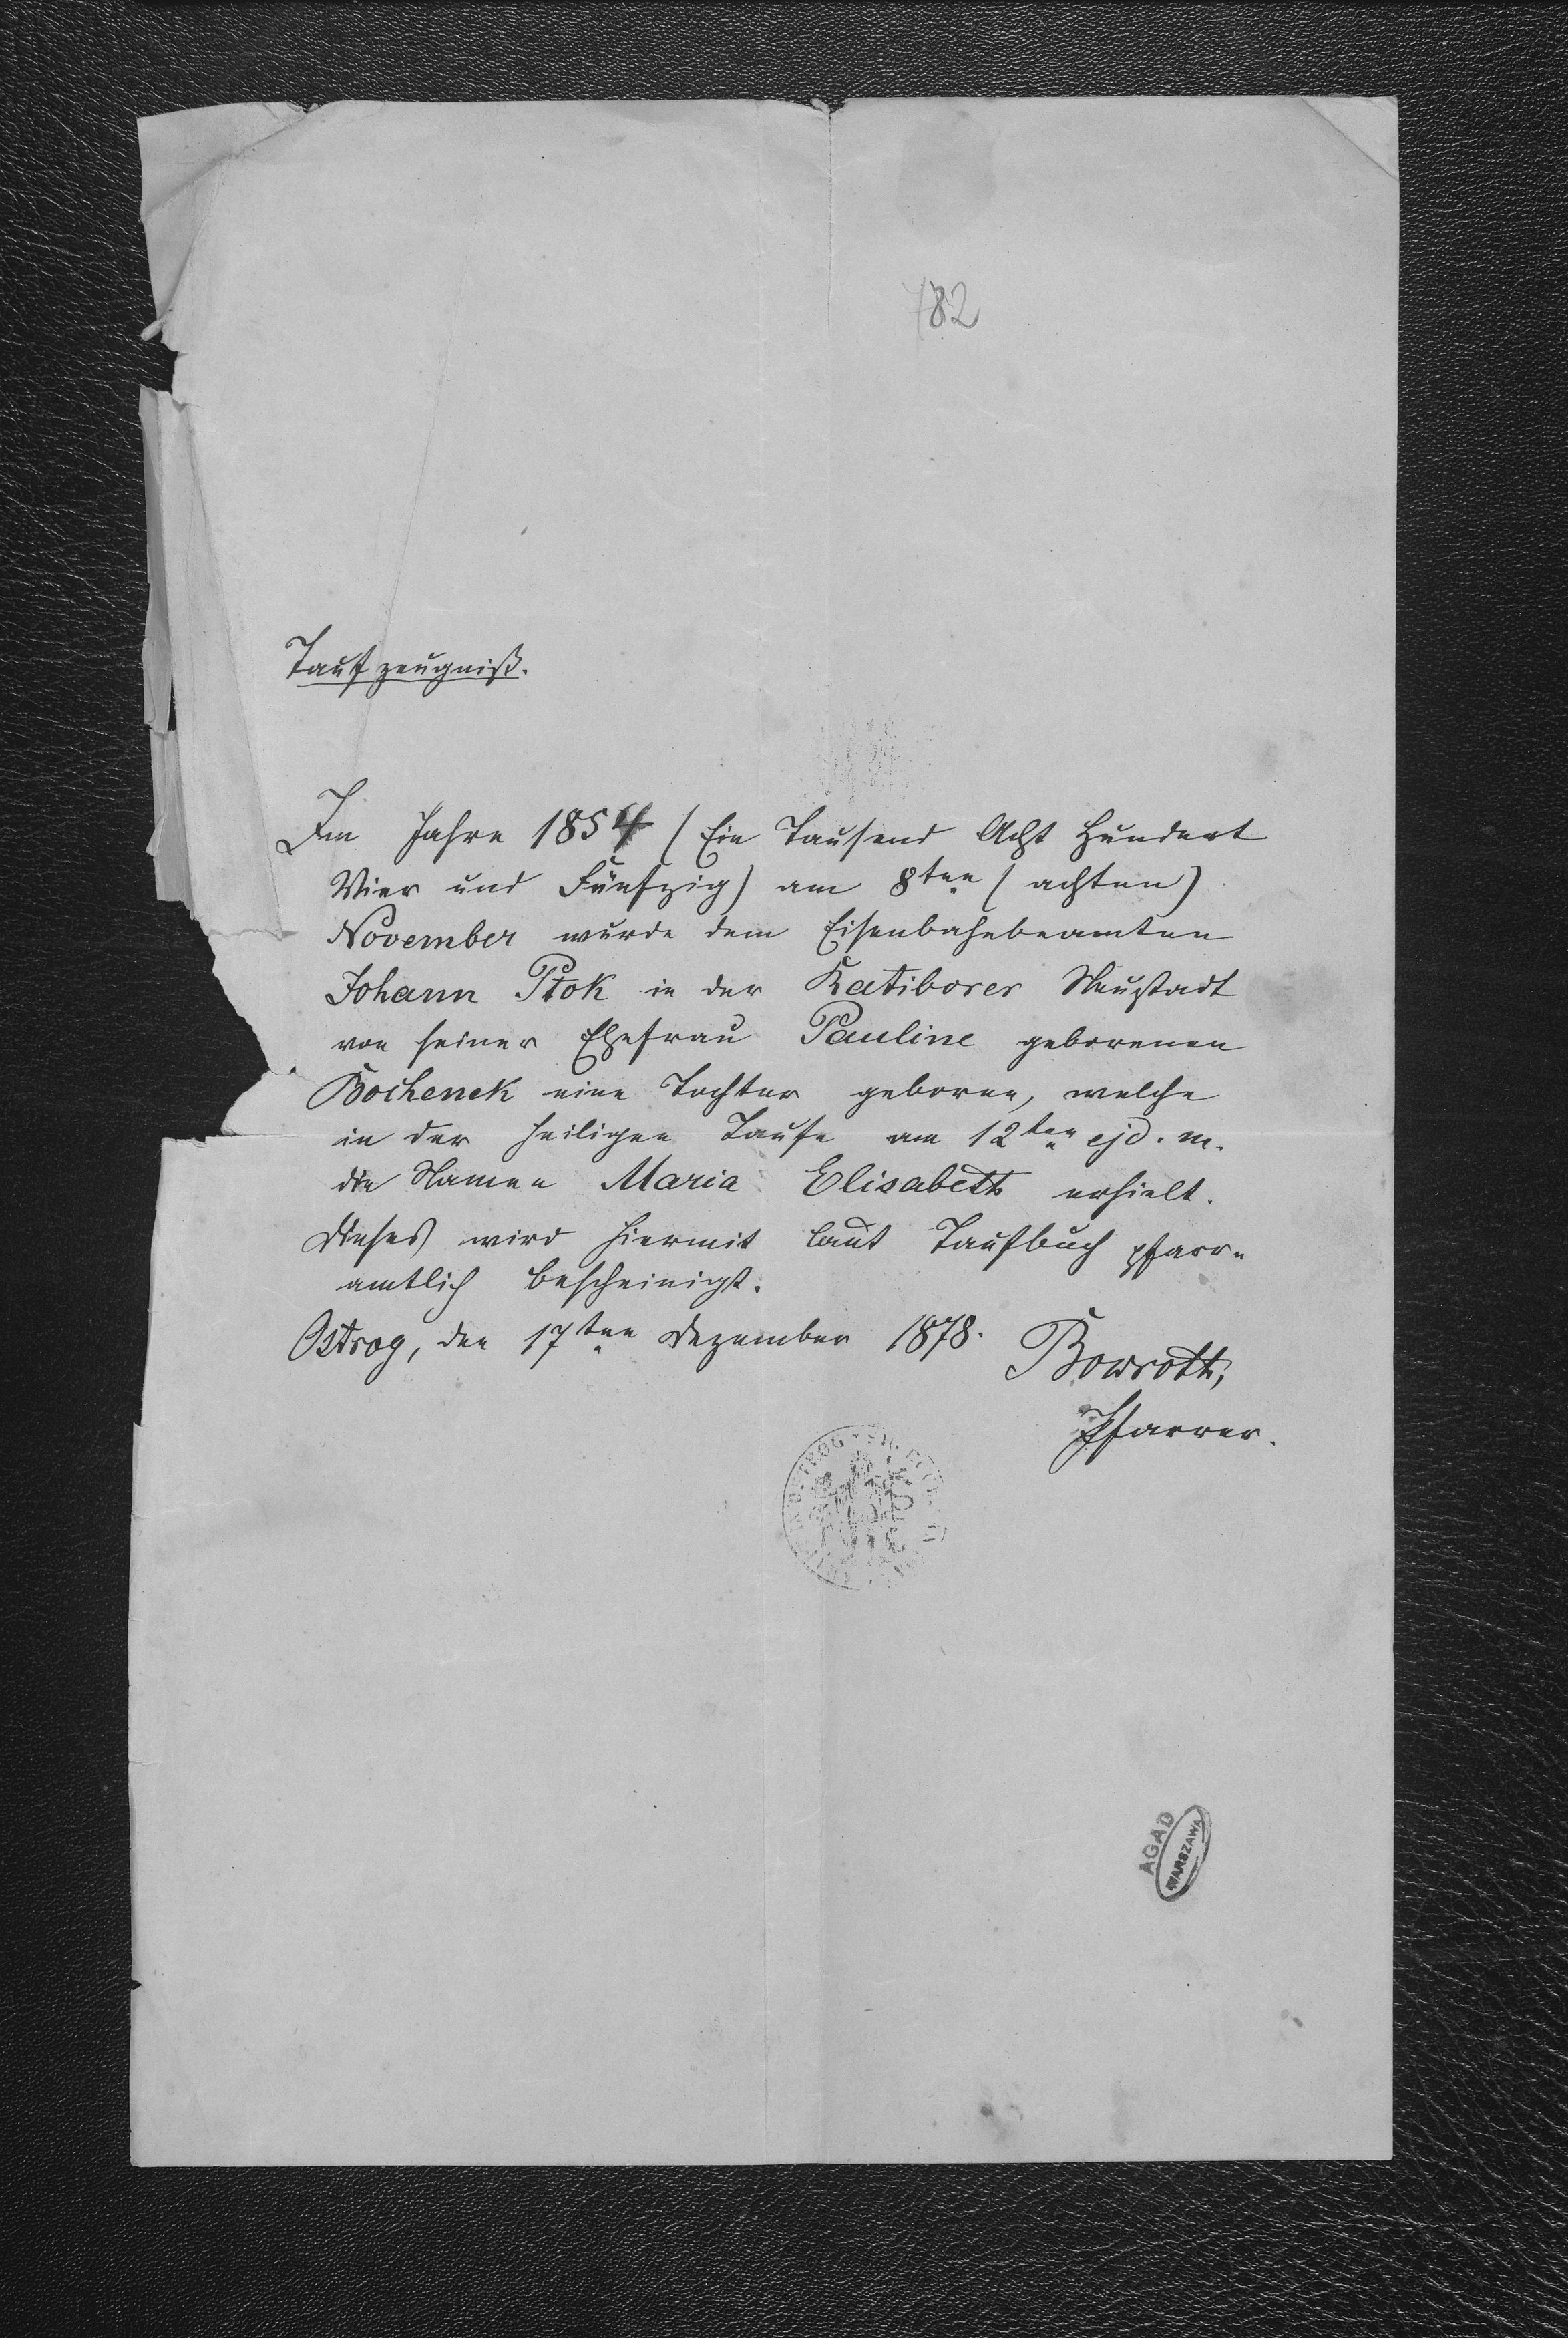 782
Taufzeugniß.
Im Jahre 1854 (Ein Tausend Acht Hundert
Vier und Fünfzig) am 8ten (achten)
November wurde dem Eisenbahnbeamten
Johann Ptok in der Ratiborer Neustadt
von seiner Ehefrau Pauline geborenen
Bochenek eine Tochter geboren, welche
in der heiligen Taufe am 12ten ejd. m.
die Namen Maria Elisabeth erhielt.
Dieses wird hiermit laut Taufbuch pfarr-
amtlich bescheinigt.
Ostrog, den 17ten Dezember 1878.
Bowroth,
Pfarrer.
OSTROG
AGAD
WARSZAWA